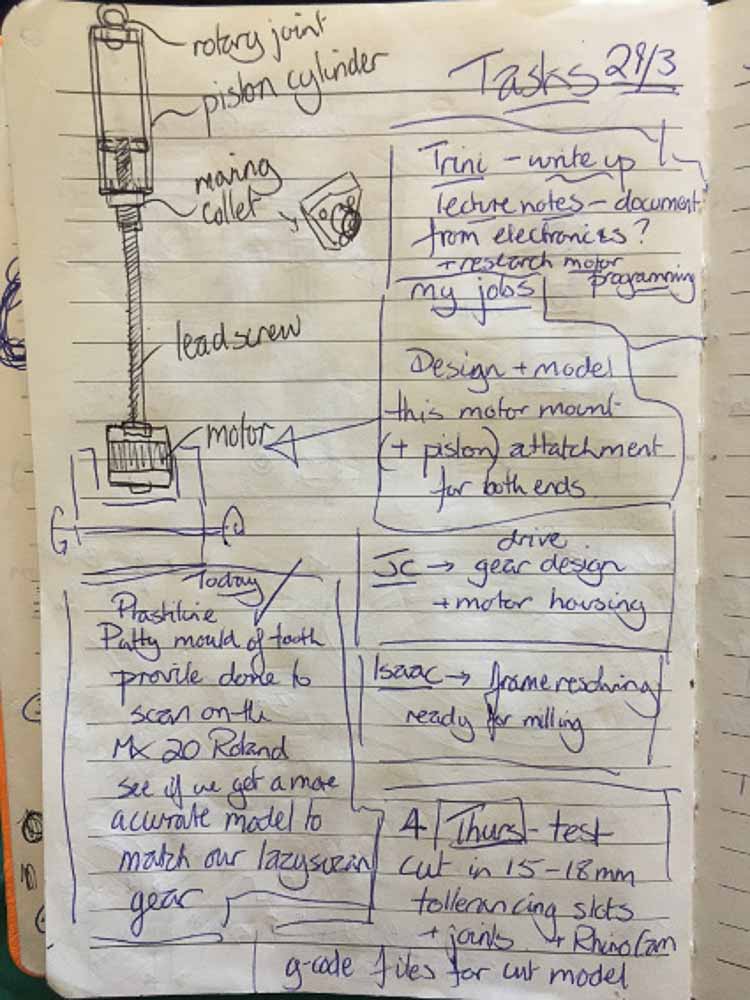 rotary joint
piston cylinder
Tasks 29/3
moving
collet
leadscrew
motor
Trini - write up
lecture notes - document
from electronics?
+ research motor
programming
my jobs
Design + model
this motor mount
(+ piston) attatchment
for both ends
drive
JC → gear design
+ motor housing
Isaac → frame resolving
ready for milling
Today
Plastiline
Putty mould of tooth
provile done to
scan on the
Mx 20 Roland
see if we get a more
accurate model to
match our lazysuzan
gear
4 Thurs - test
cut in 15-18mm
tollerancing slots
+ joints + RhinoCam
g-code files for cut model